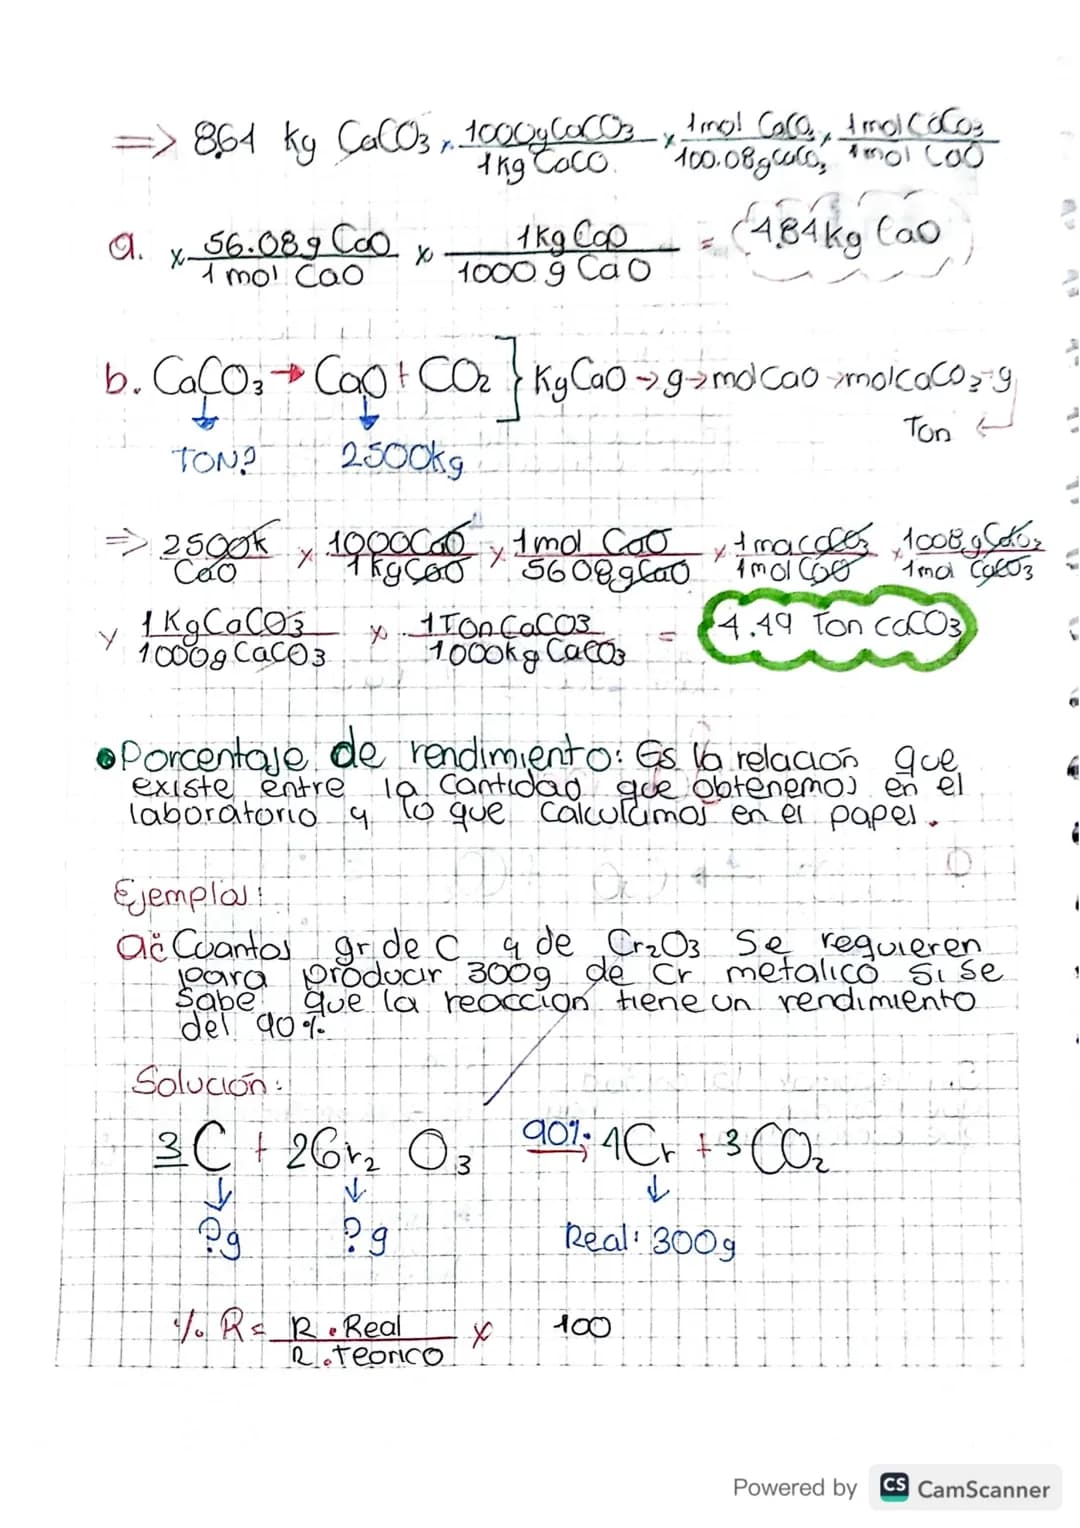 => 864 kg CaCO3 x 1000g CaCO3 / 1kg CaCO x 1mol CaCO3 / 100.08g CaCO3 x 1mol CaCO3 / 1mol CaO
a. x 56.08g CaO / 1mol CaO x 1kg CaO / 1000g CaO = 484kg CaO
b. CaCO3 → CaO + CO2 } KgCaO → g → molCaO → molCaCO3 → g
Ton ←
TON? 2500kg
=> 2500k CaO x 1000CaO / 1KgCaO x 1mol CaO / 56.08gCaO x 1maCaCO3 / 1molCaO x 100.8gCaCO3 / 1mol CaCO3
x 1KgCaCO3 / 1000gCaCO3 x 1TonCaCO3 / 1000kg CaCO3 = 4.49 Ton CaCO3
•Porcentaje de rendimiento: Es la relación que
existe entre la cantidad que obtenemos en el
laboratorio y lo que calculamos en el papel.
Ejemplos:
a¿ Cuantos gr de C y de Cr2O3 se requieren
para producir 300g de Cr metalico si se
sabe que la reaccion tiene un rendimiento
del 90%
Solución:
3C + 2Cr2 O3 90% → 4Cr + 3CO2
?g ?g Real: 300g
% R = R.Real / R.Teorico x 100
Powered by CS CamScanner